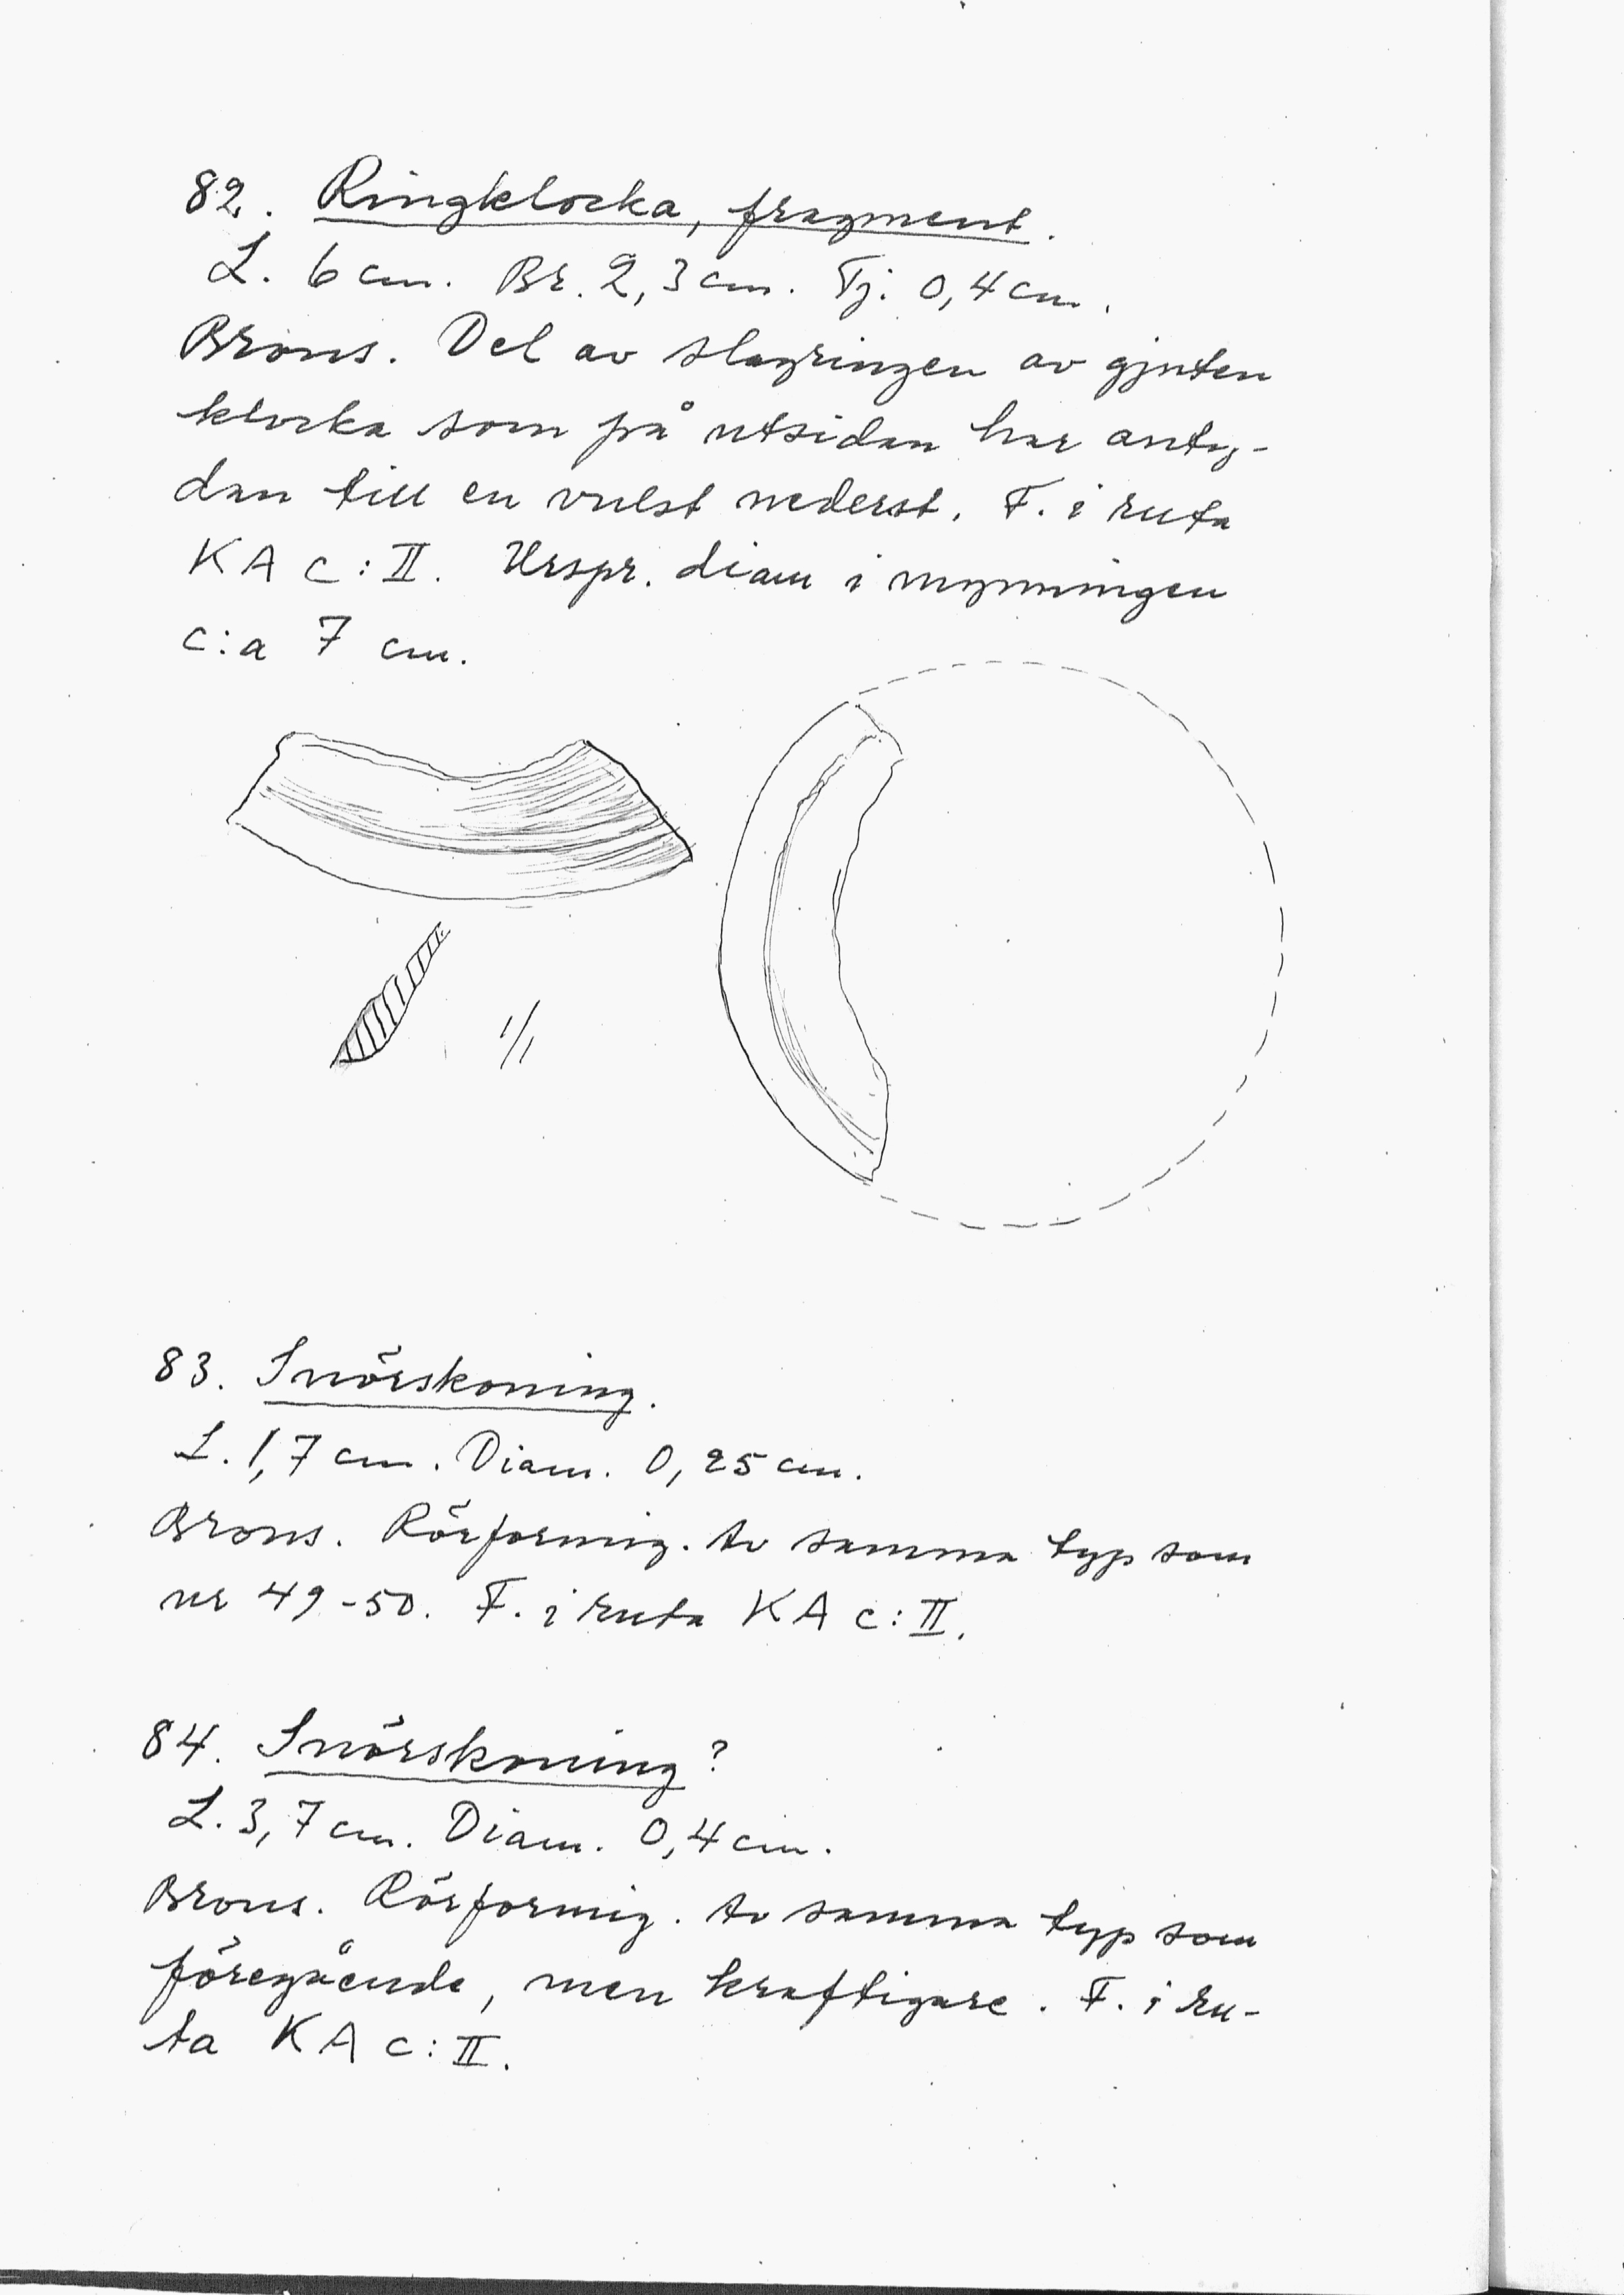 82. Ringklocka, fragment.
L. 6 cm. Br. 2,3 cm. Tj. 0,4 cm.
Brons. Del av slagringen av gjuten
klocka som på utsidan har anty-
dan till en vulst nederst. F. i ruta
KA c:II. Urspr. diam i mynningen
c:a 7 cm.
1/1
83. Snörskoning.
L. 1,7 cm. Diam. 0,25 cm.
Brons. Rörformig. Av samma typ som
nr 49-50. F. i ruta KA c:II.
84. Snörskoning?
L. 3,7 cm. Diam. 0,4 cm.
Brons. Rörformig. Av samma typ som
föregående, men kraftigare. F. i ru-
ta KA c:II.